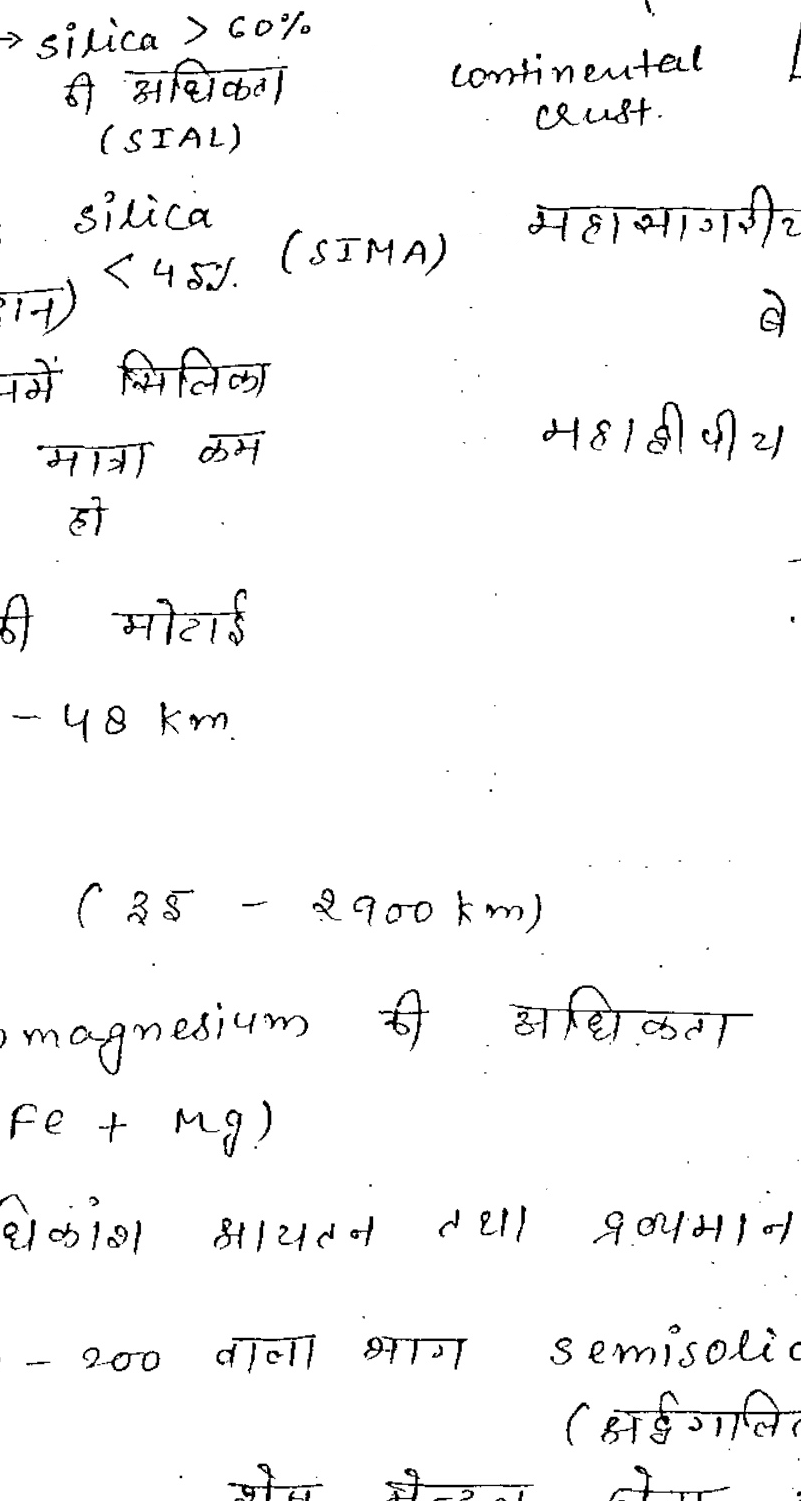 → silica > 60%
की अधिकता
(SIAL)
continental
crust.
silica
< 45%. (SIMA)
महासागरीय
बे
सिलिका
मात्रा कम
हो
महाद्वीपीय
की मोटाई
- 48 km.
(35 - 2900 km)
magnesium की अधिकता
Fe + Mg)
धिकांश आयतन तथा द्रव्यमान
- 200 वाला भाग semisolid
(अर्द्धगलित
शेष मेन्टल ठोस